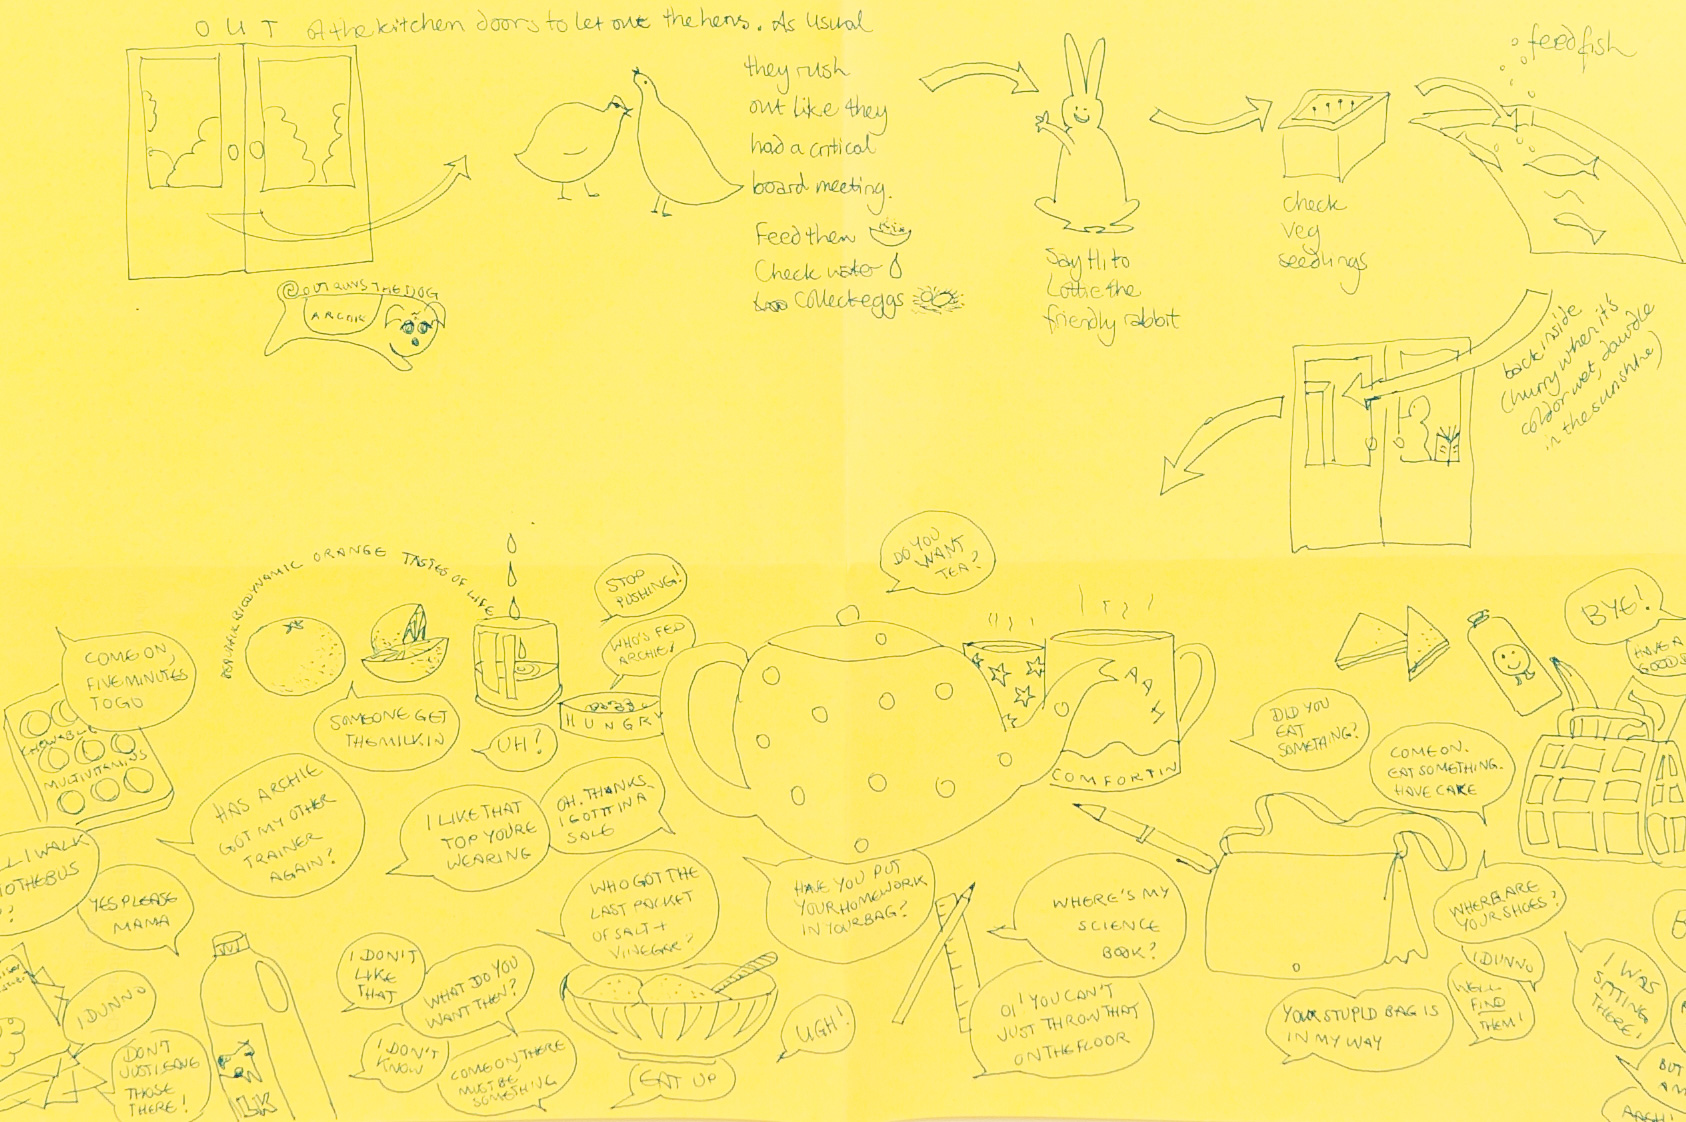 OUT of the kitchen doors to let out the hens. As usual
they rush
out like they
had a critical
board meeting.
Feed them
Check water
Collect eggs
@OUTRUNSTHEDOG
ARCHIE
Say Hi to
Lottie the
friendly rabbit
check
veg
seedlings
feed fish
back inside
(hurry when it's
cold or wet, dawdle
in the sunshine)
BIODYNAMIC ORANGE TASTES OF LIFE
COME ON,
FIVE MINUTES
TO GO
CHEWABLE
MULTIVITAMINS
SOMEONE GET
THE MILK IN
UH?
STOP
PUSHING!
WHO'S FED
ARCHIE?
HUNGRY
DO YOU
WANT
TEA?
AAH
COMFORTIN
DID YOU
EAT
SOMETHING?
COME ON.
EAT SOMETHING.
HAVE CAKE
BYE!
HAVE A
GOOD
HAS ARCHIE
GOT MY OTHER
TRAINER
AGAIN?
I LIKE THAT
TOP YOU'RE
WEARING
OH. THANKS.
I GOT IT IN A
SALE
I WALK
TO THE BUS
?
YES PLEASE
MAMA
I DUNNO
DON'T
JUST LEAVE
THOSE
THERE!
LK
I DON'T
LIKE
THAT
WHAT DO YOU
WANT THEN?
I DON'T
KNOW
COME ON THERE
MUST BE
SOMETHING
WHO GOT THE
LAST PACKET
OF SALT +
VINEGAR?
EAT UP
HAVE YOU PUT
YOUR HOMEWORK
IN YOUR BAG?
UGH!
WHERE'S MY
SCIENCE
BOOK?
OI! YOU CAN'T
JUST THROW THAT
ON THE FLOOR
WHERE ARE
YOUR SHOES?
I DUNNO
WE'LL
FIND
THEM!
YOUR STUPID BAG IS
IN MY WAY
I WAS
SITTING
THERE!
BUT
AARGH!